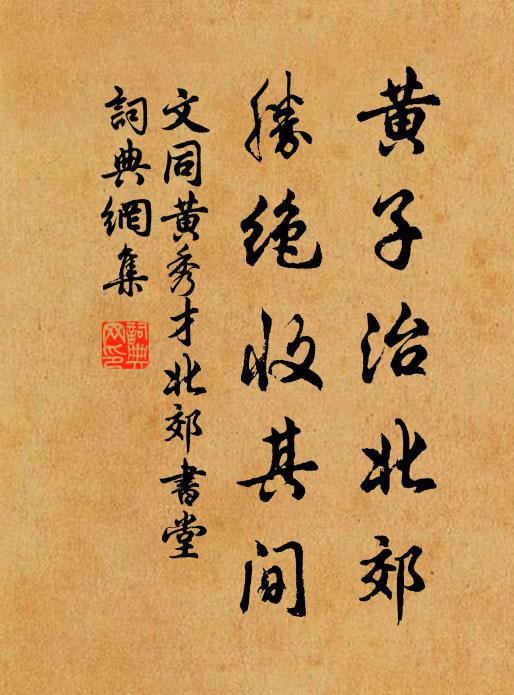 黄子治北郊
勝絶收其间
文同黄秀才北郊書堂
詞典網集
詞典網印